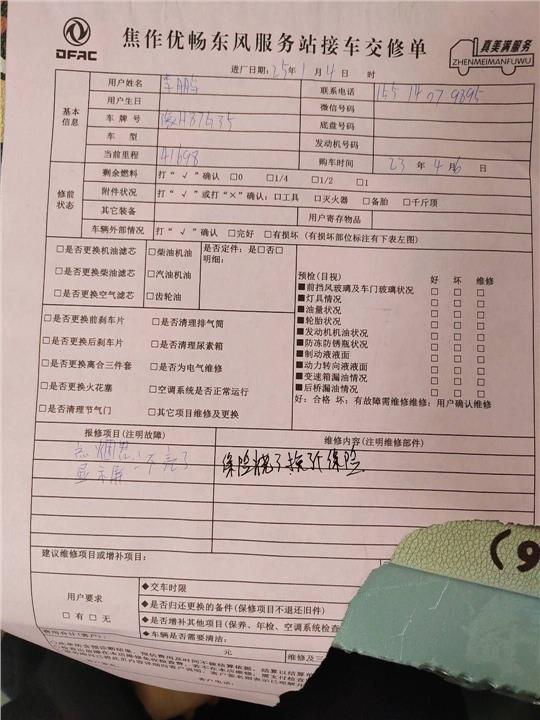 DFAC
焦作优畅东风服务站接车交修单
真美满服务
ZHENMEIMANFUWU
进厂日期：25年1月4日 时
基本信息
用户姓名 李鹏
联系电话 155 1407 9395
用户生日
微信号码
车牌号
底盘号码
车型
发动机号码
当前里程 41698
购车时间 23年4月6日
修前状态
剩余燃料 打“√”确认 □0 □1/4 □1/2 □1
附件状况 打“√”或打“×”确认：□工具 □灭火器 □备胎 □千斤顶
其它装备
用户寄存物品
车辆外部情况 打“√”确认 □完好 □有损坏（有损坏部位标注有下表左图）
□是否更换机油滤芯 □柴油机油
□是否更换柴油滤芯 □汽油机油
□是否更换空气滤芯 □齿轮油
是否定件：是□否□
明细：
□是否更换前刹车片 □是否清理排气筒
□是否更换后刹车片 □是否清理尿素箱
□是否更换离合三件套 □是否为电气维修
□是否更换火花塞 □空调系统是否正常运行
□是否清理节气门 □其它项目维修及更换
预检(目视) 好 坏 维修
■前挡风玻璃及车门玻璃状况 □ □ □
■灯具情况 □ □ □
■油量状况 □ □ □
■轮胎状况 □ □ □
■发动机机油状况 □ □ □
■防冻防锈瓶状况 □ □ □
■制动液液面 □ □ □
■动力转向液液面 □ □ □
■变速箱漏油情况 □ □ □
■后桥漏油情况 □ □ □
好：合格 坏：有故障需维修维修：用户确认维修
报修项目(注明故障)
维修内容(注明维修部件)
点烟器不亮了
显示屏
保险烧了换个保险
建议维修项目或增补项目：
用户要求
□有□无
◆交车时限
◆是否归还更换的备件(保修项目不退还旧件)
◆是否增补其他项目(保养、年检、空调系统检查
◆车辆是否需要清洁：
费用合计(客户)： 元
维修及三
客户电话：